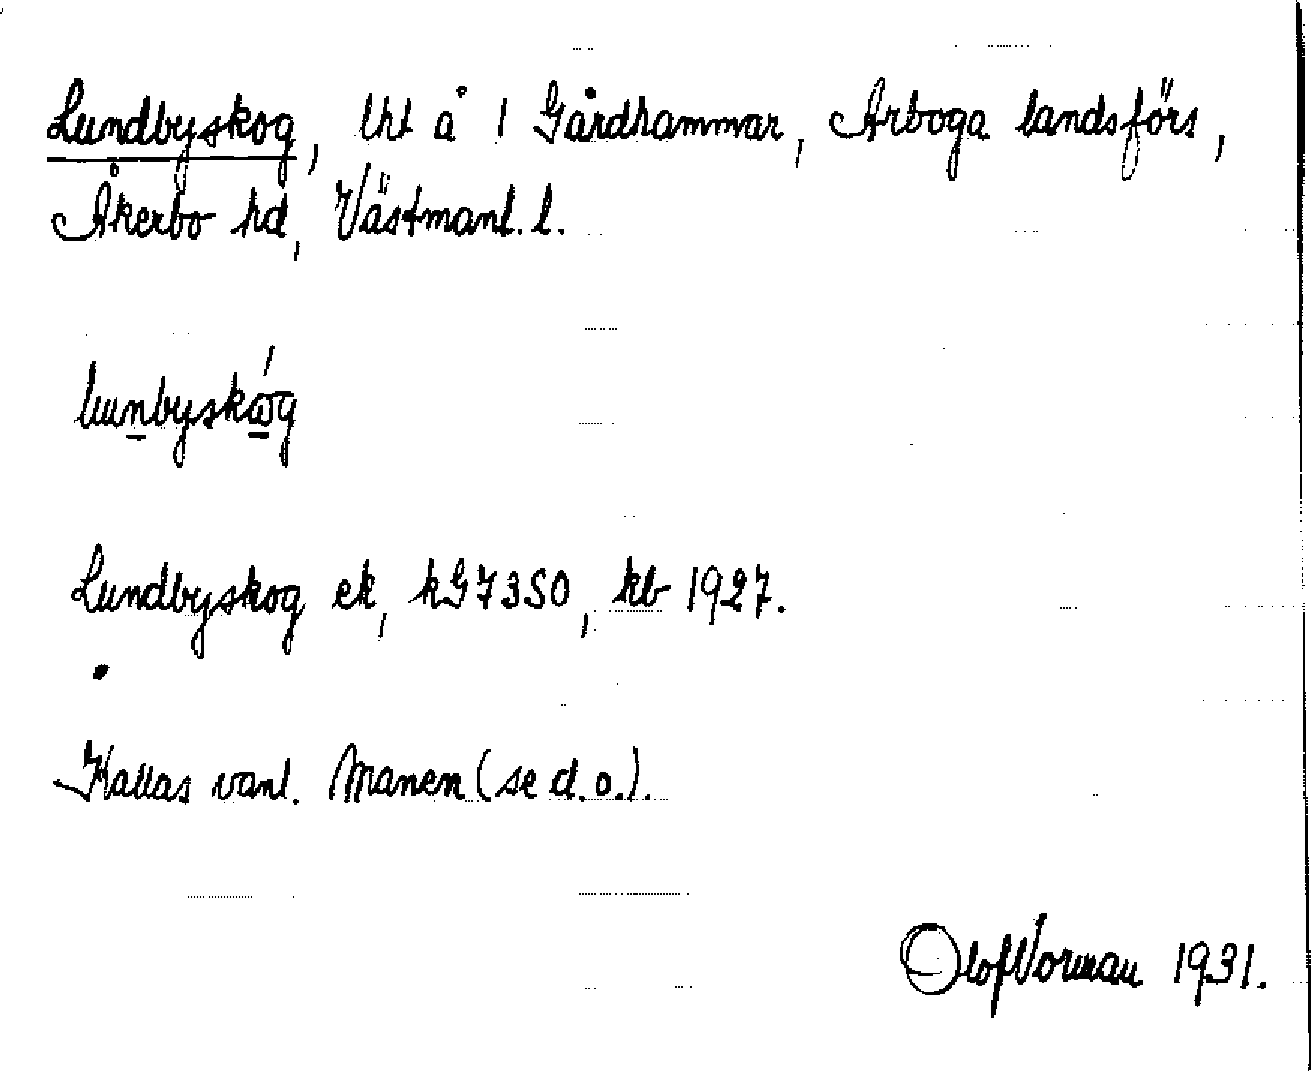 Lundbyskog, lht å 1 Gårdhammar, Arboga landsförs,
Åkerbo hd, Västmanl. l.
lunbyskóg
Lundbyskog ek, kG73SO, kb 1927.
Kallas vanl. Manen (se d.o.).
Olof Vorman 1931.